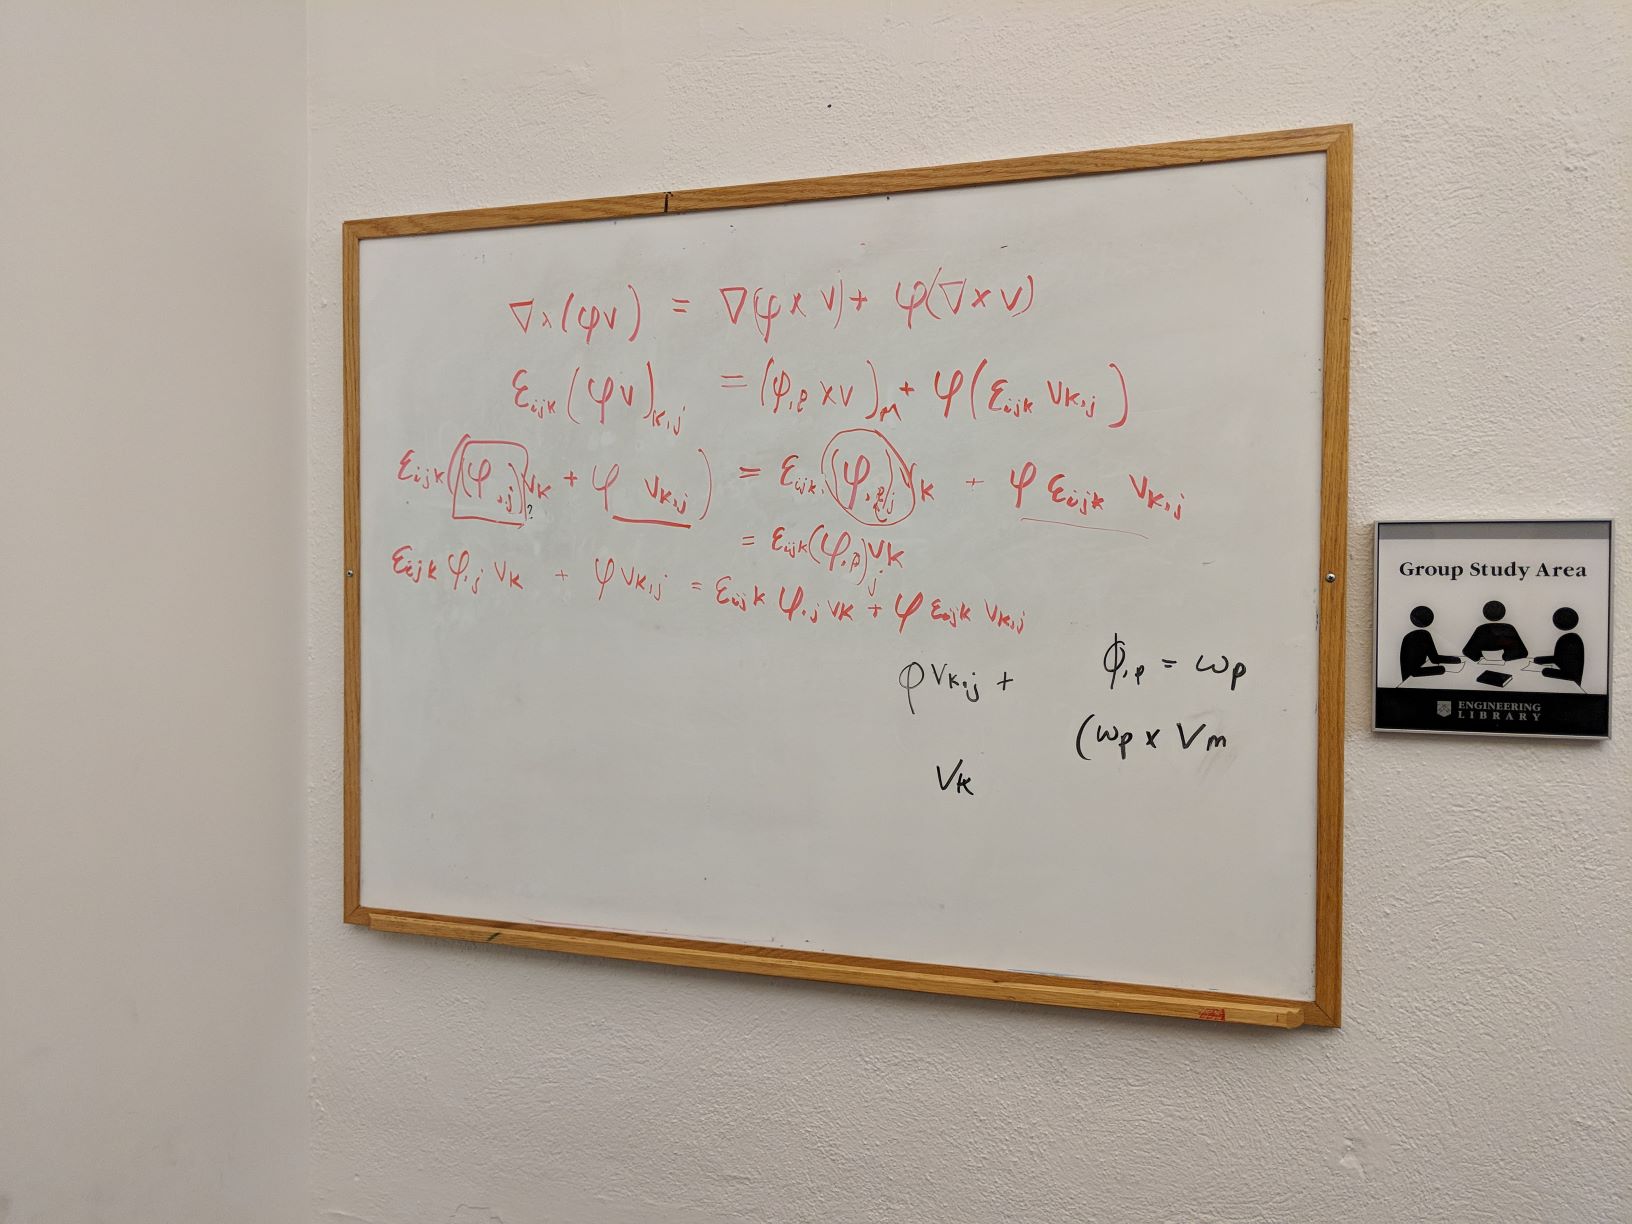 ∇×(φv) = ∇(φ × v) + φ(∇×v)
εijk (φv)k,j = (φ,p × v)m + φ(εijk vk,j)
εijk((φ,j)vk + φ vk,j) = εijk (φ,p)j vk + φ εijk vk,j
?
= εijk(φ,p)j vk
εijk φ,j vk + φ vk,j = εijk φ,j vk + φ εijk vk,j
φ vk,j +
ϕ,p = ωp
(ωp × Vm
Vk
Group Study Area
ENGINEERING
LIBRARY